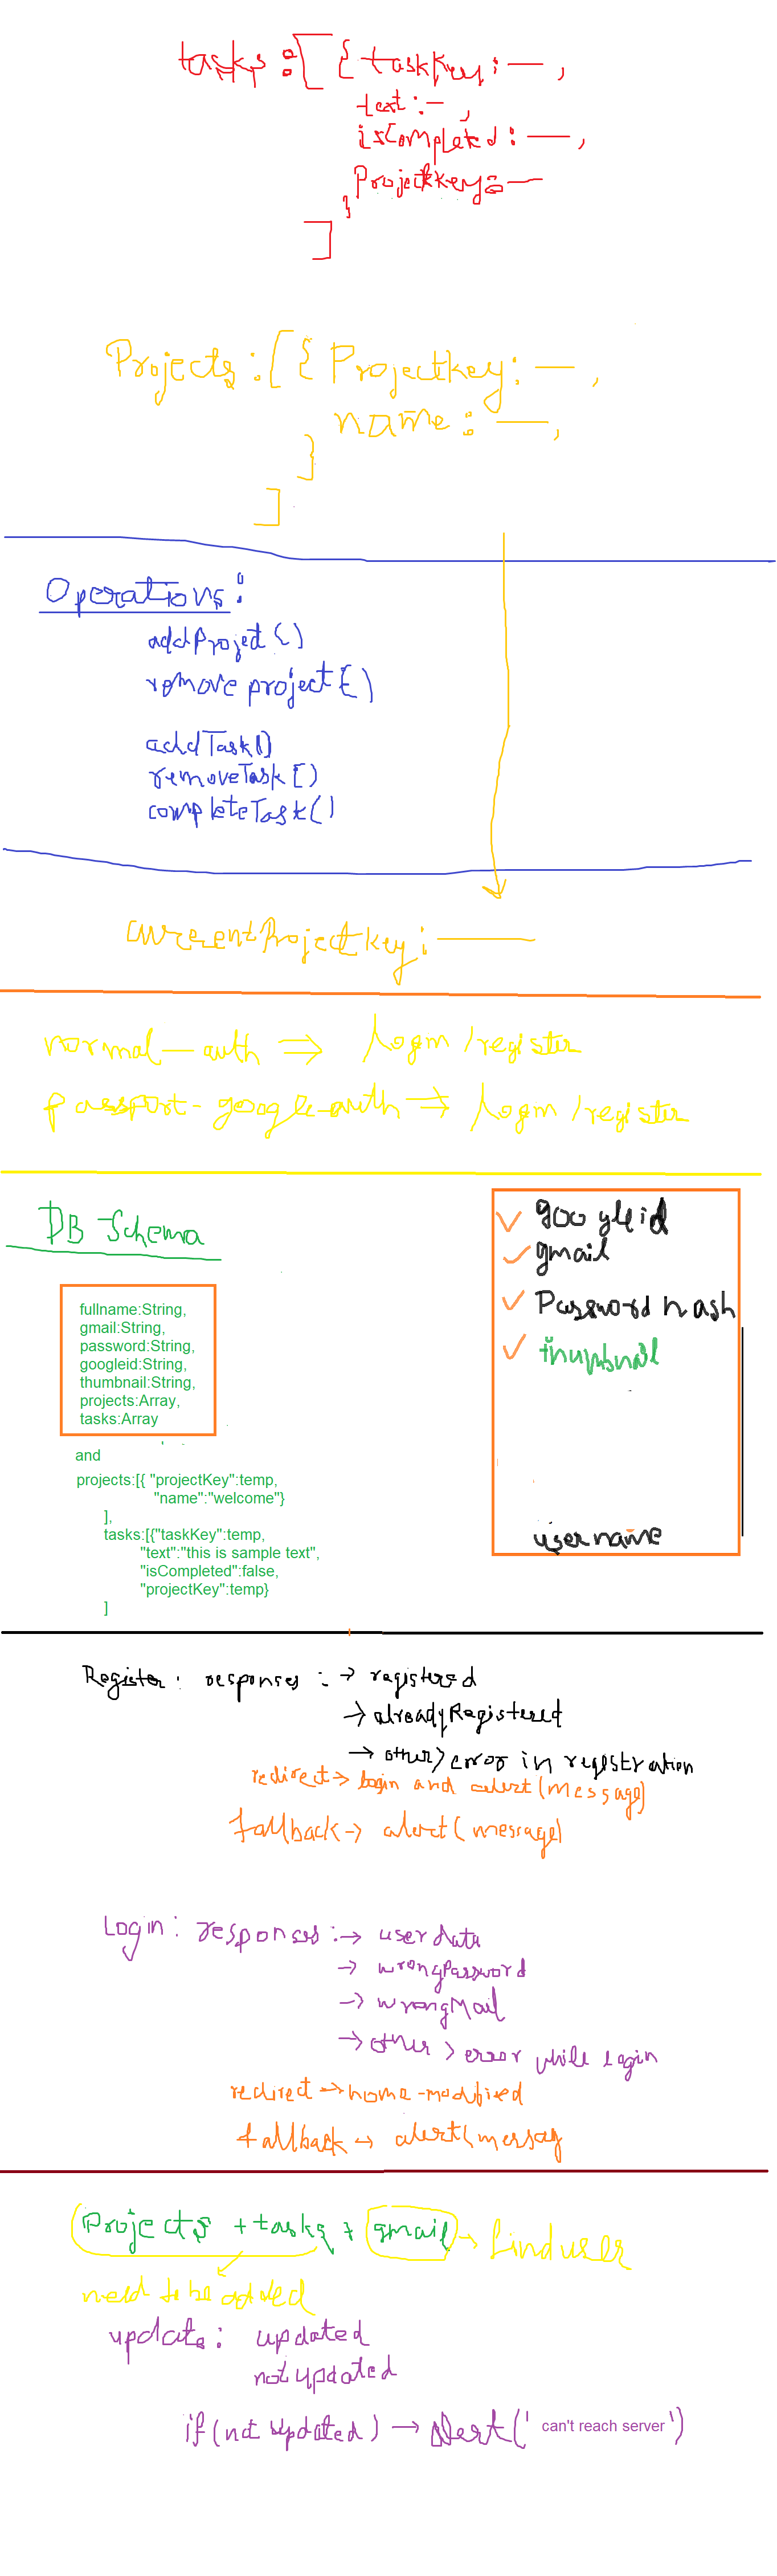 tasks:[{taskKey:—,
text:—,
isCompleted:—,
Projectkey:—
}
]
Projects:[{Projectkey:—,
name:—,
}
]
Operations:
addProject()
remove project()
addTask()
removeTask()
completeTask()
currentProjectkey:——
normal-auth ⇒ login/register
passport-google-auth ⇒ login/register
DB Schema
fullname:String,
gmail:String,
password:String,
googleid:String,
thumbnail:String,
projects:Array,
tasks:Array
and
projects:[{ "projectKey":temp,
"name":"welcome"}
],
tasks:[{"taskKey":temp,
"text":"this is sample text",
"isCompleted":false,
"projectKey":temp}
]
✓ googleid
✓ gmail
✓ Password hash
✓ thumbnail
username
Register: responses:→ registered
→ alreadyRegistered
→ other> error in registration
redirect→ login and alert(message)
fallback→ alert(message)
Login: responses:→ userdata
→ wrongPassword
→ wrongMail
→ other > error while login
redirect→home-modified
fallback→ alert(messag
Projects + tasks + gmail → finduser
need to be added
update: updated
not updated
if(not updated) → Alert('can't reach server')